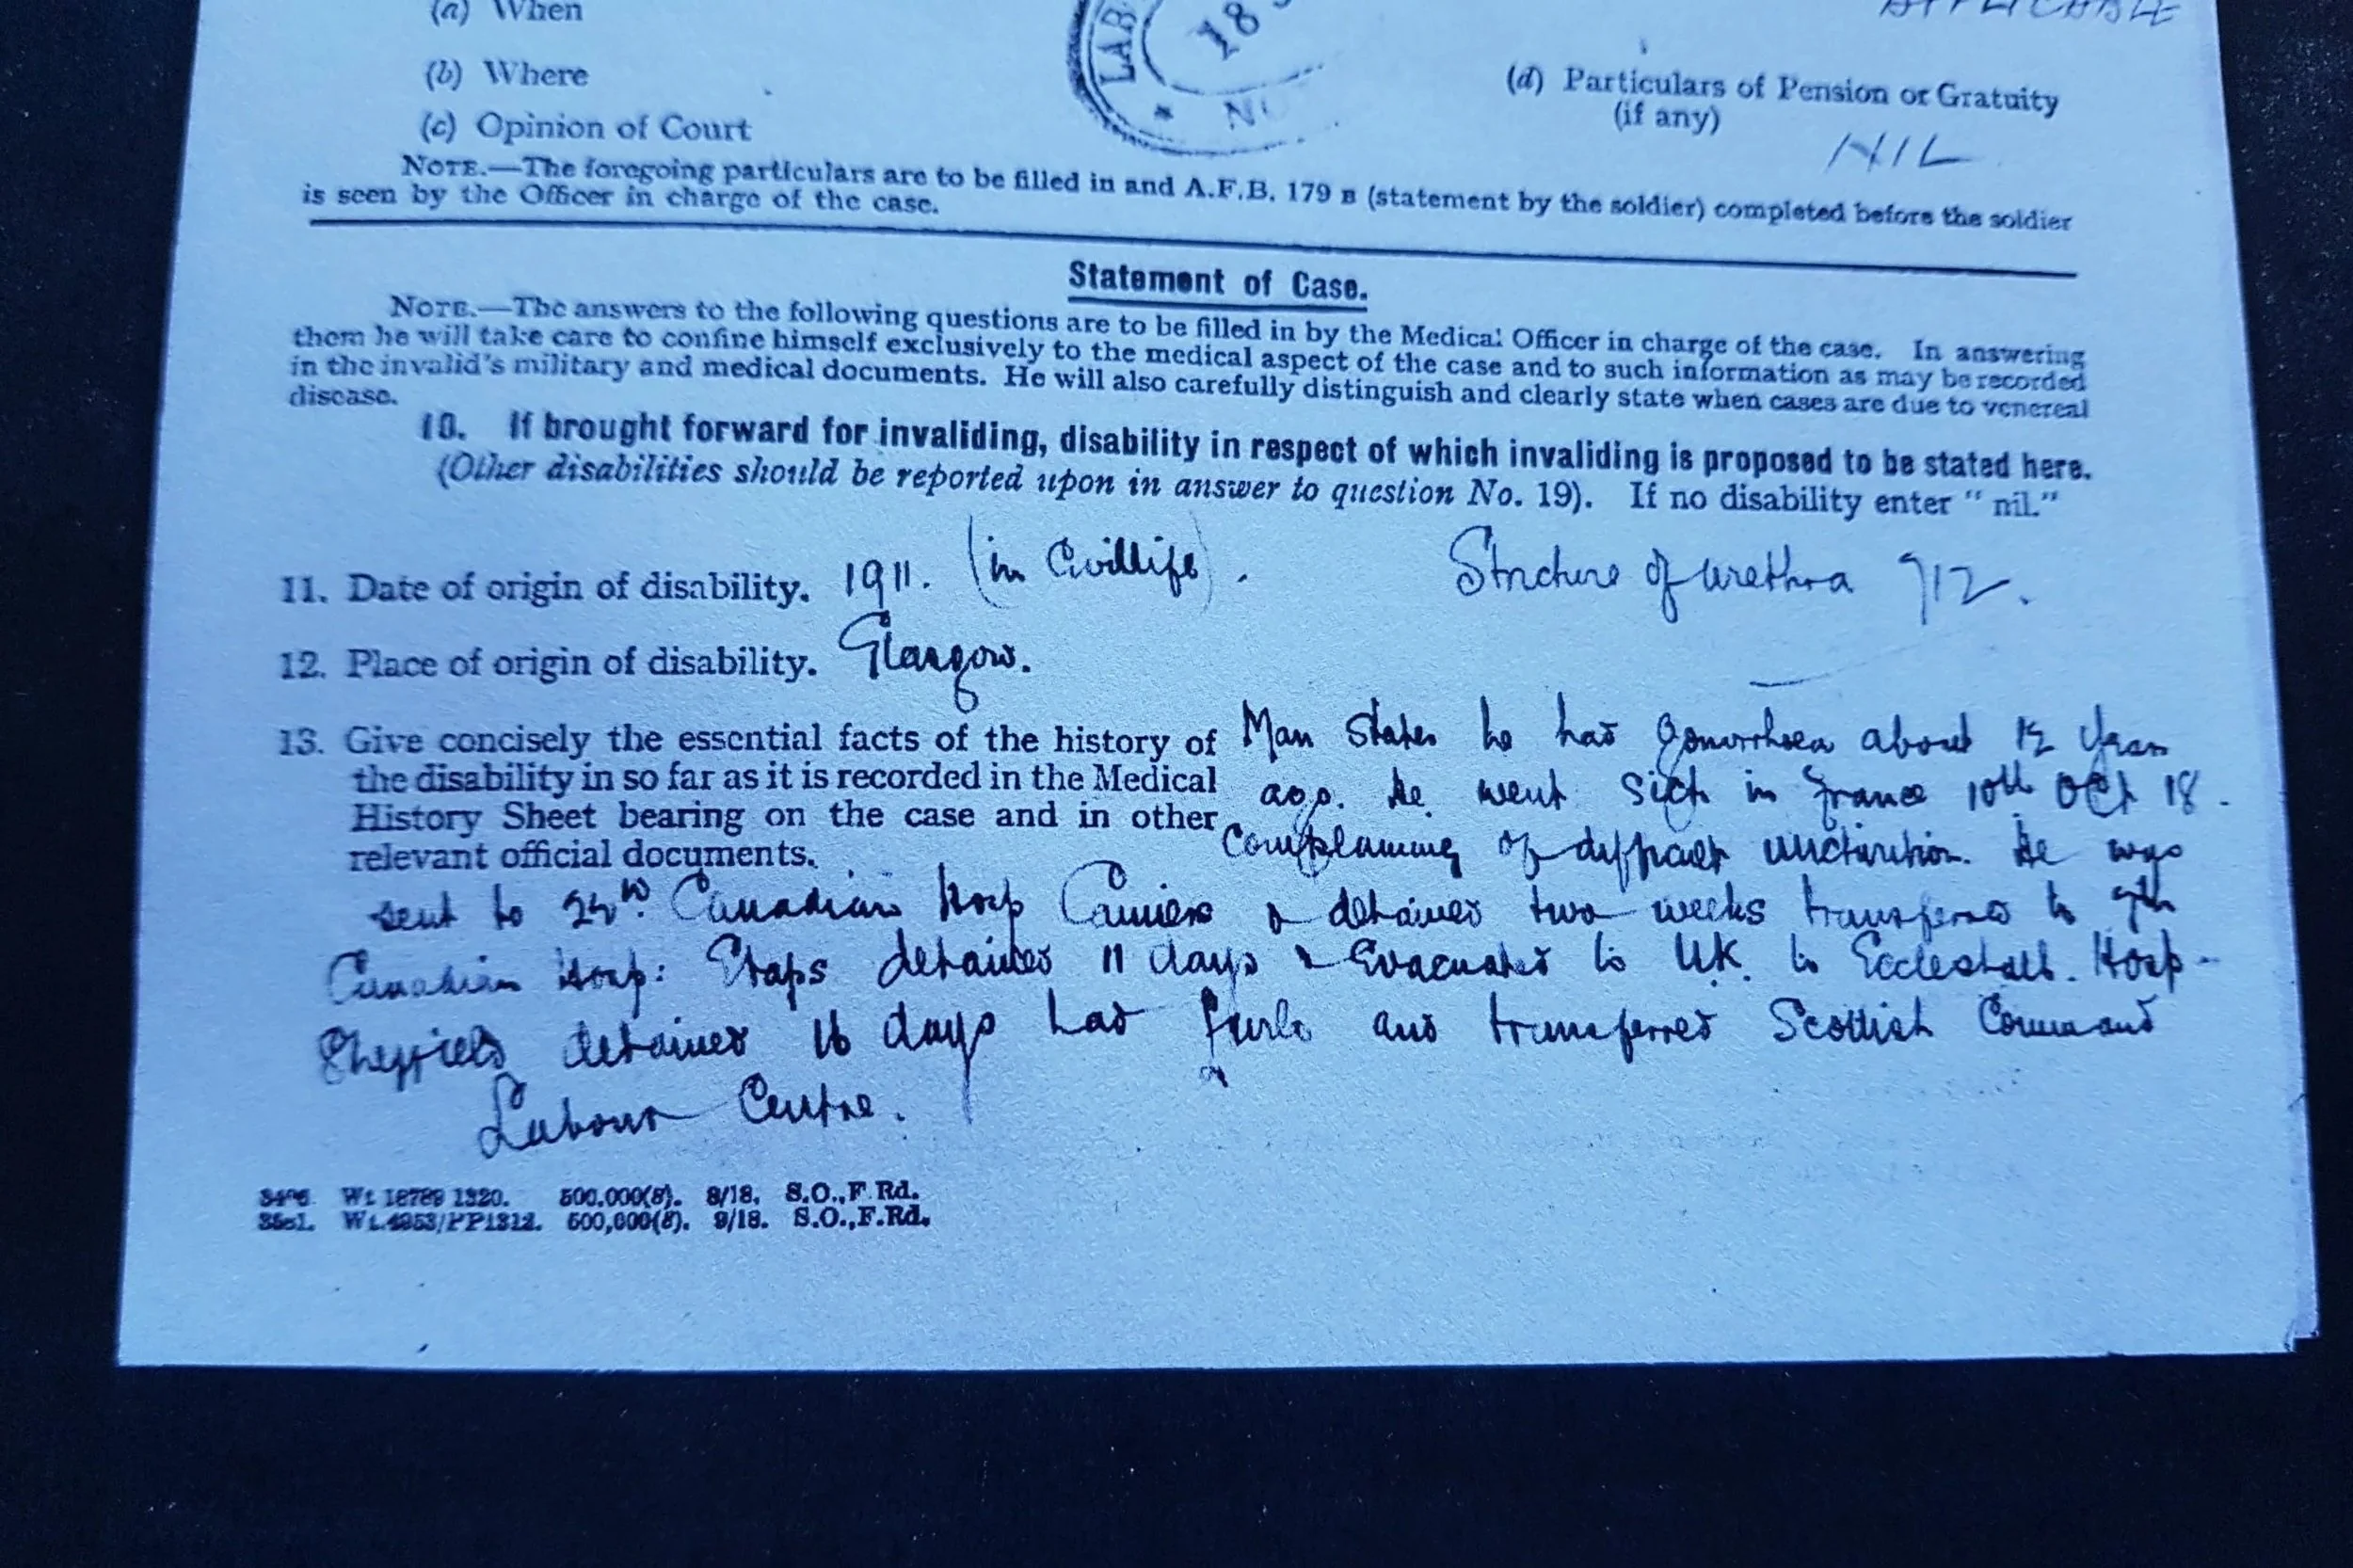 (a) When
APPLICABLE
LAB
18
(b) Where
(d) Particulars of Pension or Gratuity
(if any)
(c) Opinion of Court
NIL
NOTE.—The foregoing particulars are to be filled in and A.F.B. 179 B (statement by the soldier) completed before the soldier
is seen by the Officer in charge of the case.
Statement of Case.
NOTE.—The answers to the following questions are to be filled in by the Medical Officer in charge of the case. In answering
them he will take care to confine himself exclusively to the medical aspect of the case and to such information as may be recorded
in the invalid's military and medical documents. He will also carefully distinguish and clearly state when cases are due to venereal
disease.
10. If brought forward for invaliding, disability in respect of which invaliding is proposed to be stated here.
(Other disabilities should be reported upon in answer to question No. 19). If no disability enter "nil."
Stricture of urethra 712.
11. Date of origin of disability. 1911. (in Civil life).
12. Place of origin of disability. Glasgow.
13. Give concisely the essential facts of the history of
the disability in so far as it is recorded in the Medical
History Sheet bearing on the case and in other
relevant official documents.
Man states he had gonorrhoea about 12 years
ago. He went sick in France 10th Oct 18.
Complaining of difficult micturition. He was
sent to Canadian Hosp Camiers & detained two weeks transferred to 7th
Canadian Hosp: Etaps detained 11 days & Evacuated to UK. to Ecclesall. Hosp-
Sheffield detained 16 days had furlo and transferred Scottish Command
Labour Centre.
Wt 18789 1320. 500,000(8). 8/18. S.O.,F.Rd.
Wt.4953/PP1312. 500,000(8). 9/18. S.O.,F.Rd.